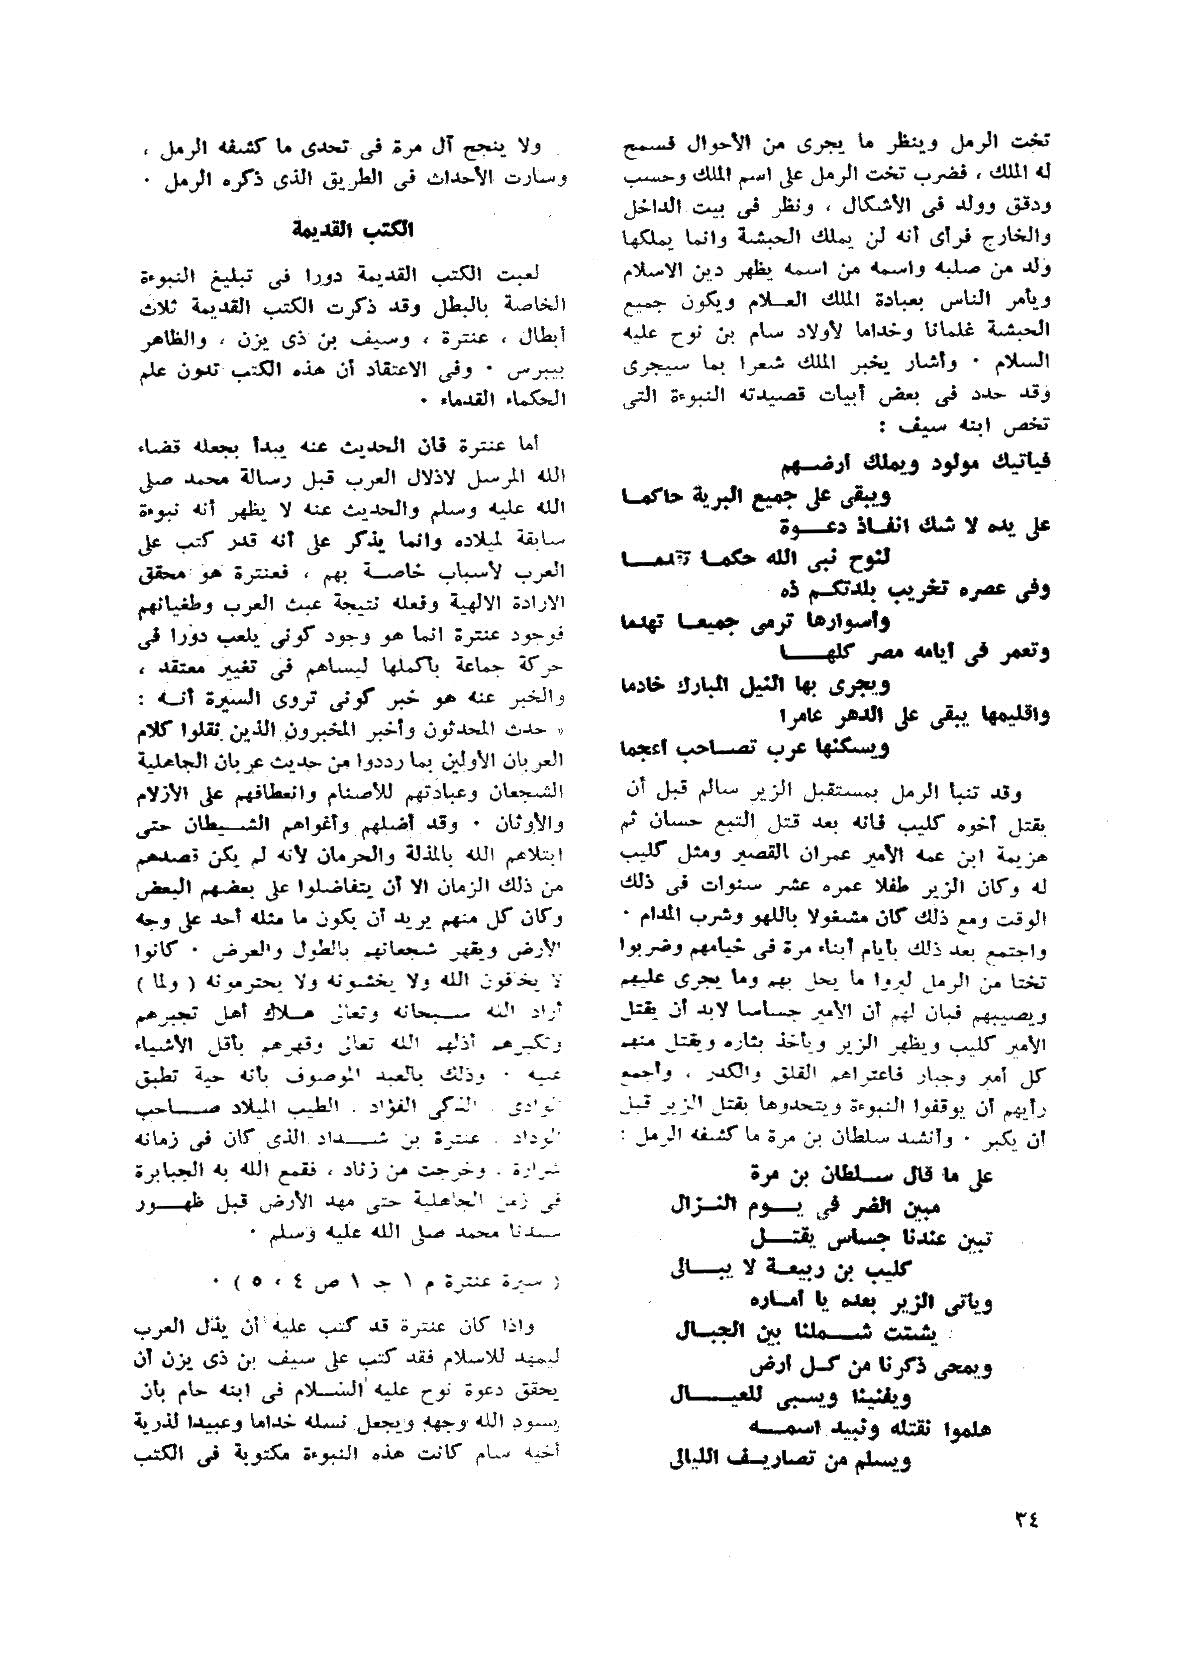 تخت الرمل وينظر ما يجرى من الأحوال فسمح
له الملك ، فضرب تخت الرمل على اسم الملك وحسب
ودقق وولد فى الأشكال ، ونظر فى بيت الداخل
والخارج فرأى أنه لن يملك الحبشة وانما يملكها
ولد من صلبه واسمه من اسمه يظهر دين الاسلام
ويأمر الناس بعبادة الملك العـلام ويكون جميع
الحبشة غلمانا وخداما لأولاد سام بن نوح عليه
السلام ٠ وأشار يخبر الملك شعرا بما سيجرى
وقد حدد فى بعض أبيات قصيدته النبوءة التى
تخص ابنه سيف :
فياتيك مولود ويملك أرضـهم
ويبقى على جميع البرية حاكمـا
على يده لا شك انفـاذ دعـوة
لنوح نبى الله حكمـا تقدمـا
وفى عصره تخريب بلدتكـم ذه
وأسوارها ترمى جميعـا تهدما
وتعمر فى أيامه مصر كلهـا
ويجرى بها النيل المبارك خادما
واقليمها يبقى على الدهر عامرا
ويسكنها عرب تصـاحب أعجما
وقد تنبا الرمل بمستقبل الزير سالم قبل أن
يقتل أخوه كليب فانه بعد قتل التبع حسان ثم
هزيمة ابن عمه الأمير عمران القصير ومثل كليب
له وكان الزير طفلا عمره عشر سنوات فى ذلك
الوقت ومع ذلك كان مشغولا باللهو وشرب المدام ٠
واجتمع بعد ذلك بأيام أبناء مرة فى خيامهم وضربوا
تختا من الرمل ليروا ما يحل بهم وما يجرى عليهم
ويصيبهم فبان لهم أن الأمير جساسا لابد أن يقتل
الأمير كليب ويظهر الزير ويأخذ بثاره ويقتل منهم
كل أمير وجبار فاعتراهم القلق والكدر ، وأجمع
رأيهم أن يوقفوا النبوءة ويتحدوها بقتل الزير قبل
أن يكبر ٠ وأنشد سلطان بن مرة ما كشفه الرمل :
على ما قال سـلطان بن مرة
مبين الضر فى يـوم النـزال
تبين عندنا جساس يقتـل
كليب بن ربيعـة لا يبـالى
ويأتى الزير بعده يا أمـاره
يشتت شـملنا بين الجبـال
ويمحى ذكرنا من كـل أرض
ويفنينا ويسبى للعيـال
هلموا نقتله ونبيد اسمـه
ويسلم من تصاريـف الليالى
ولا ينجح آل مرة فى تحدى ما كشفه الرمل ،
وسارت الأحداث فى الطريق الذى ذكره الرمل ٠
الكتب القديمة
لعبت الكتب القديمة دورا فى تبليغ النبوءة
الخاصة بالبطل وقد ذكرت الكتب القديمة ثلاث
أبطال ، عنترة ، وسيف بن ذى يزن ، والظاهر
بيبرس ٠ وفى الاعتقاد أن هذه الكتب تدون علم
الحكماء القدماء ٠
أما عنترة فان الحديث عنه يبدأ بجعله قضاء
الله المرسل لاذلال العرب قبل رسالة محمد صلى
الله عليه وسلم والحديث عنه لا يظهر أنه نبوءة
سابقة لميلاده وانما يذكر على أنه قدر كتب على
العرب لأسباب خاصـة بهم ، فعنترة هو محقق
الارادة الالهية وفعله نتيجة عبث العرب وطغيانهم
فوجود عنترة انما هو وجود كونى يلعب دورا فى
حركة جماعة بأكملها ليساهم فى تغيير معتقد ،
والخبر عنه هو خبر كونى تروى السيرة أنـه :
« حدث المحدثون وأخبر المخبرون الذين نقلوا كلام
العربان الأولين بما رددوا من حديث عربان الجاهلية
الشجعان وعبادتهم للأصنام وانعطافهم على الأزلام
والأوثان ٠ وقد أضلهم وأغواهم الشـيطان حتى
ابتلاهم الله بالمذلة والحرمان لأنه لم يكن قصدهم
من ذلك الزمان الا أن يتفاضلوا على بعضهم البعض
وكان كل منهم يريد أن يكون ما مثله أحد على وجه
الأرض ويقهر شجعانهم بالطول والعرض ٠ كانوا
لا يخافون الله ولا يخشونه ولا يحترمونه ( ولما )
أراد الله سـبحانه وتعالى هـلاك أهل تجبرهم
وتكبرهم أذلهم الله تعالى وقهرهم بأقل الأشياء
عليه ٠ وذلك بالعبد الموصوف بأنه حية تطبق
الوادى . الذكى الفؤاد . الطيب الميلاد صـاحب
الوداد . عنترة بن شـداد الذى كان فى زمانه
شرارة . وخرجت من زناد ، فقمع الله به الجبابرة
فى زمن الجاهلية حتى مهد الأرض قبل ظهـور
سـيدنا محمد صلى الله عليه وسلم ٠
( سيرة عنترة م ١ جـ ١ ص ٤ ، ٥ ) ٠
واذا كان عنترة قد كتب عليه أن يذل العرب
ليمهد للاسلام فقد كتب على سيف بن ذى يزن أن
يحقق دعوة نوح عليه السـلام فى ابنه حام بأن
يسود الله وجهه ويجعل نسله خداما وعبيدا لذرية
أخيه سام كانت هذه النبوءة مكتوبة فى الكتب
٣٤